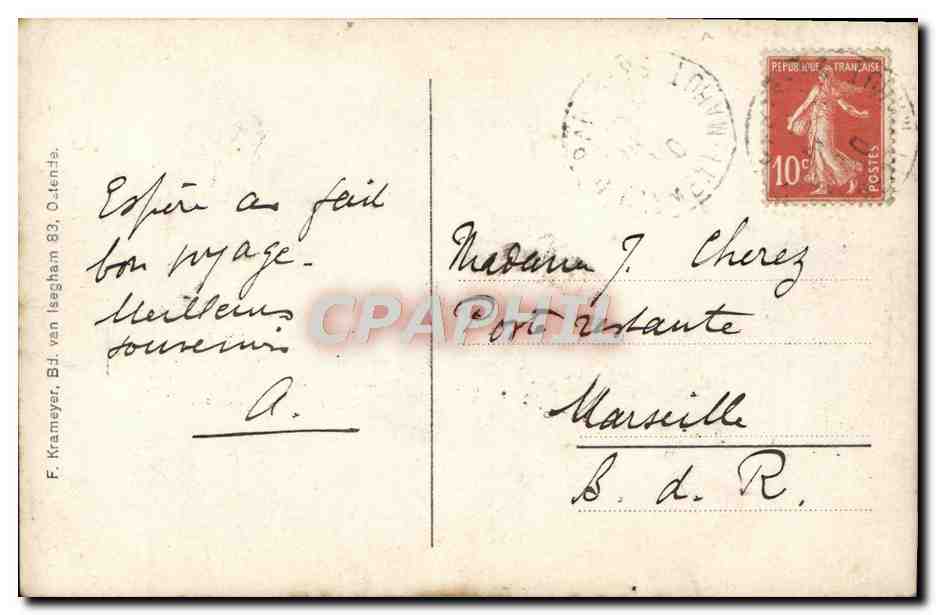 Espère as fait
bon voyage -
Meilleurs
souvenirs
A.
F. Krameyer, Bd. van Isegham 83, Ostende.
REPUBLIQUE FRANÇAISE
10c
POSTES
Madame J. Cherez
Poste restante
Marseille
B. d. R.
CPAPHIL